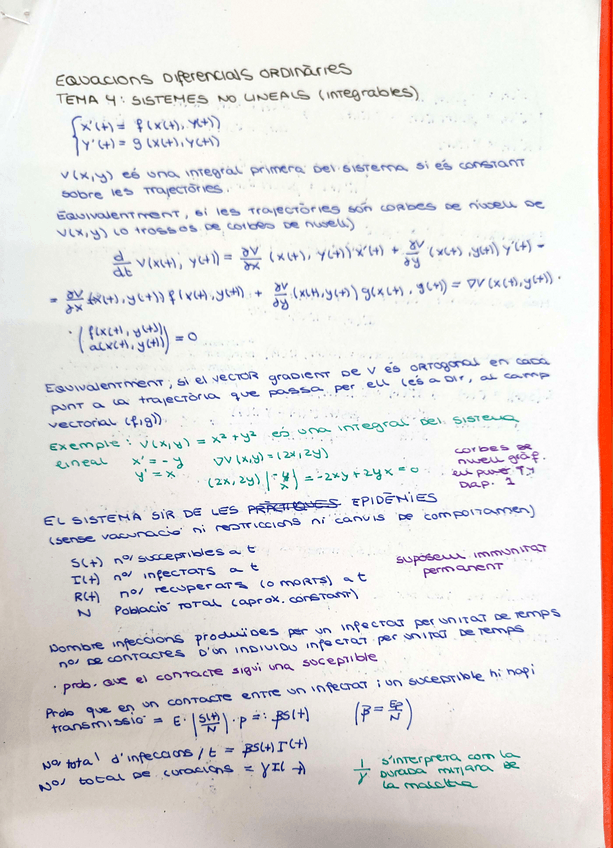 EQUACIONS DIFERENCIALS ORDINÀRIES
TEMA 4: SISTEMES NO LINEALS (integrables)
{x'(t) = f(x(t), y(t))
{y'(t) = g(x(t), y(t))
V(x,y) és una integral primera del sistema si és constant
sobre les trajectòries.
Equivalentment, si les trajectòries són corbes de nivell de
V(x,y) (o trossos de corbes de nivell)
d/dt V(x(t), y(t)) = ∂V/∂x (x(t), y(t)) x'(t) + ∂V/∂y (x(t), y(t)) y'(t) =
= ∂V/∂x (x(t), y(t)) f(x(t), y(t)) + ∂V/∂y (x(t), y(t)) g(x(t), y(t)) = ∇V(x(t), y(t)) ·
· (f(x(t), y(t))
g(x(t), y(t))) = 0
Equivalentment, si el vector gradient de V és ortogonal en cada
punt a la trajectòria que passa per ell (és a dir, al camp
vectorial (f,g))
Exemple: V(x,y) = x² + y² és una integral del sistema
lineal x' = -y ∇V(x,y) = (2x, 2y)
y' = x (2x, 2y) (-y x) = -2xy + 2yx = 0
corbes de
nivell gràf.
el punt T y
Dap. 1
EL SISTEMA SIR DE LES PRÀCTIQUES EPIDÈMIES
(sense vacunació ni restriccions ni canvis de comportamen)
S(t) no/ susceptibles a t
I(t) no/ infectats a t
R(t) no/ recuperats (o morts) a t
N Població total (aprox. constant)
suposem immunitat
permanent
Nombre infeccions produïdes per un infectat per unitat de temps
no/ de contactes d'un individu infectat per unitat de temps
· prob. que el contacte sigui una suceptible
Prob que en un contacte entre un infectat i un suceptible hi hagi
transmissió = E · (S(t)/N) · p =: βS(t) (β = Ep/N)
No/ total d'infeccions / t = βS(t) I(t)
No/ total de curacions = γI(t)
1/γ s'interpreta com la
durada mitjana de
la malaltia